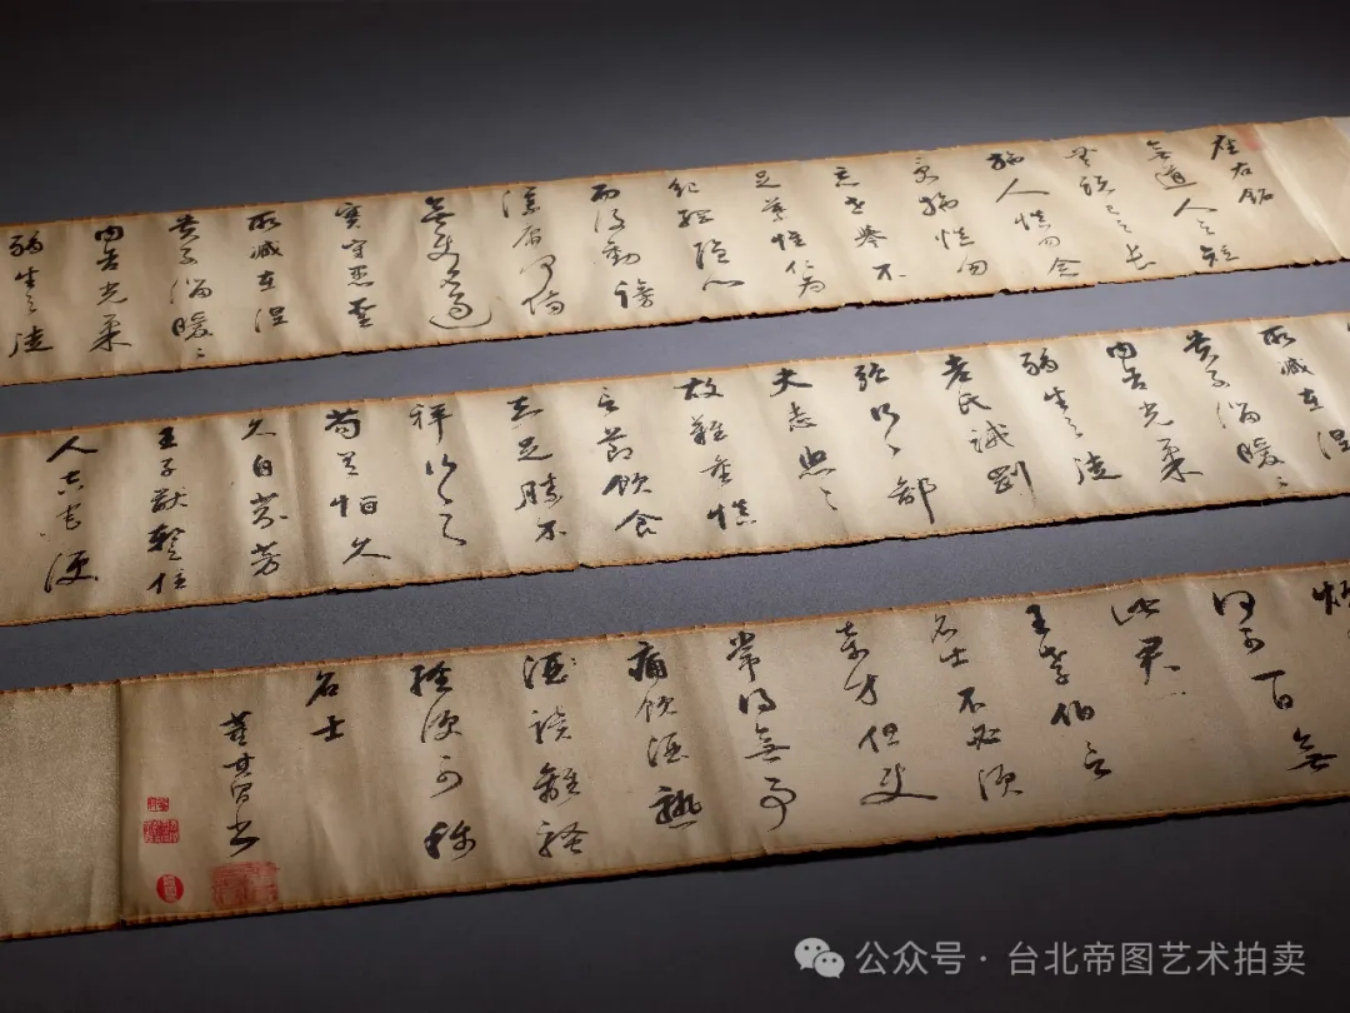 座右銘
無道人之短
無說己之長
施人慎勿念
受施慎勿
忘世譽不
足慕惟仁為
紀綱隱心
而後動謗
議庸何傷
無使名過
實守愚聖
所臧在涅
貴不淄曖〻
內含光柔
弱生之徒
所臧在涅
貴不淄曖〻
內含光柔
弱生之徒
老氏誡剛
強行〻鄙
夫志悠〻
故難量慎
言節飲食
知足勝不
祥行之
苟有恒久
久自芬芳
王子猷暫住
人空宅便
何可一日無
此君
王孝伯言
名士不必須
奇才但使
常得無事
痛飲酒熟
酒讀離騷
便可稱
名士
董其昌書
公众号·台北帝图艺术拍卖